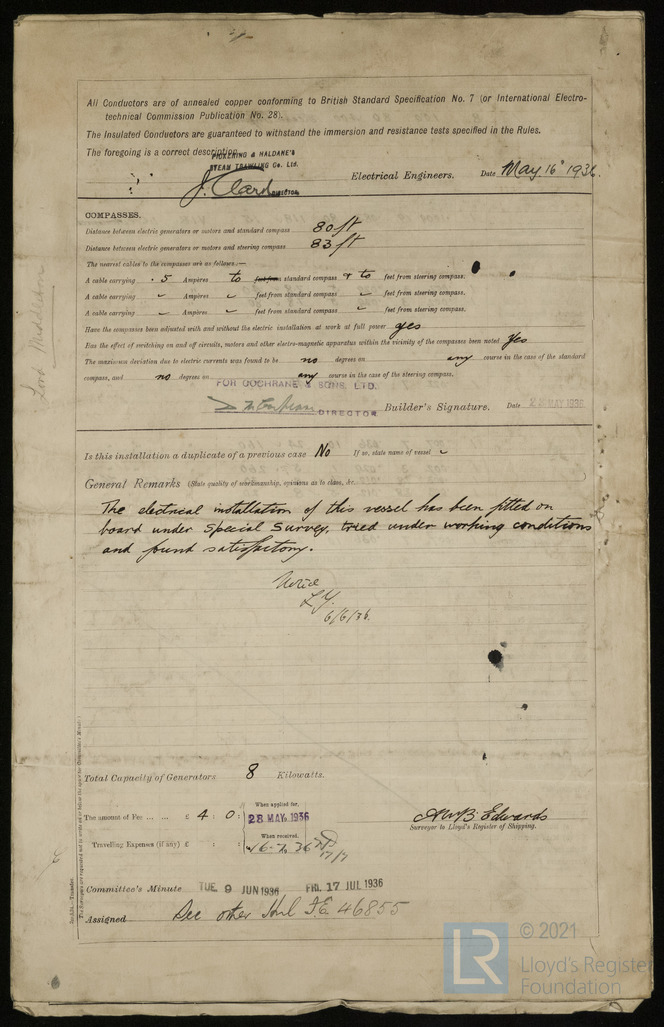 All Conductors are of annealed copper conforming to British Standard Specification No. 7 (or International Electro-
technical Commission Publication No. 28).
The Insulated Conductors are guaranteed to withstand the immersion and resistance tests specified in the Rules.
The foregoing is a correct description.
PICKERING & HALDANE'S
STEAM TRAWLING Co. Ltd.
DIRECTOR
Electrical Engineers. Date May 16 1936.
COMPASSES.
Distance between electric generators or motors and standard compass 80 ft
Distance between electric generators or motors and steering compass 83 ft
The nearest cables to the compasses are as follows:—
A cable carrying .5 Ampères to feet from standard compass & to feet from steering compass.
A cable carrying Ampères feet from standard compass feet from steering compass.
A cable carrying Ampères feet from standard compass feet from steering compass.
Have the compasses been adjusted with and without the electric installation at work at full power yes
Has the effect of switching on and off circuits, motors and other electro-magnetic apparatus within the vicinity of the compasses been noted yes
The maximum deviation due to electric currents was found to be no degrees on any course in the case of the standard
compass, and no degrees on any course in the case of the steering compass.
FOR COCHRANE & SONS, LTD.
DIRECTOR Builder's Signature. Date 22 MAY 1936
Is this installation a duplicate of a previous case No If so, state name of vessel
General Remarks (State quality of workmanship, opinions as to class, &c.
The electrical installation of this vessel has been fitted on
board under Special Survey, tried under working conditions
and found satisfactory.
Noted
6/6/36.
Total Capacity of Generators 8 Kilowatts.
The amount of Fee ... ... £ 4 : 0 :
When applied for,
28 MAY. 1936
Travelling Expenses (if any) £ : :
When received,
16.7.36
17/7
A.W.B. Edwards
Surveyor to Lloyd's Register of Shipping.
Committee's Minute TUE. 9 JUN 1936 FRI. 17 JUL 1936
Assigned See other Hul F.E. 46855
Lord Middleton
LR
© 2021
Lloyd's Register
Foundation